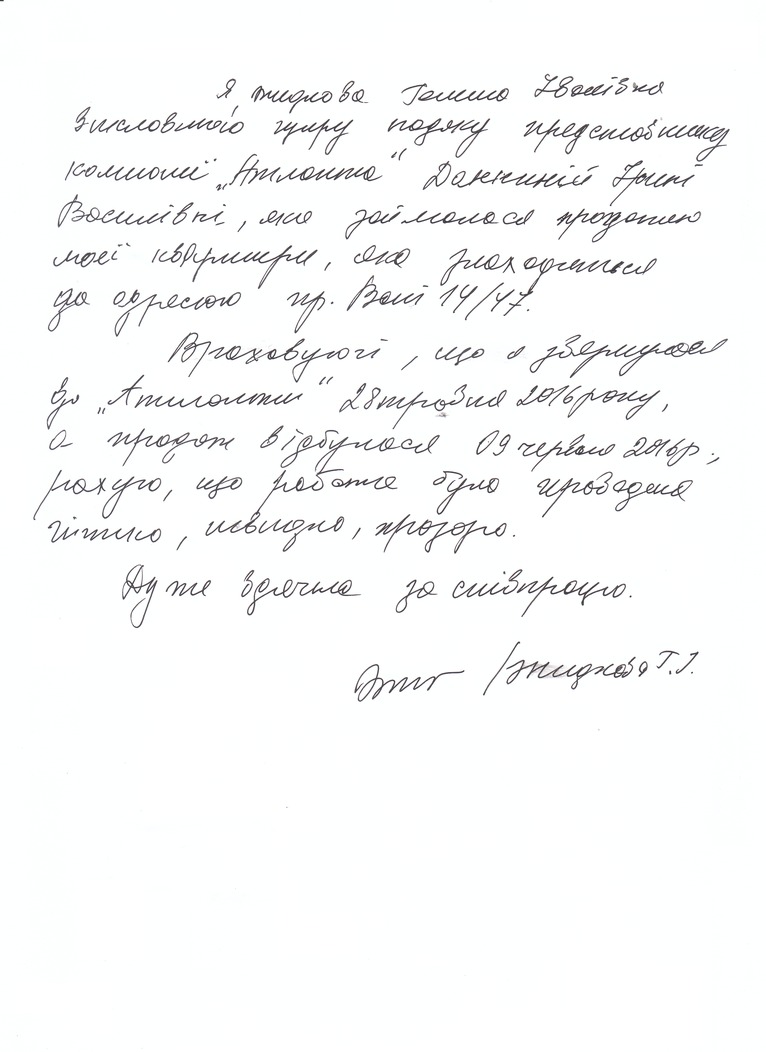 Я, Жидкова Галина Іванівна
висловлюю щиру подяку представнику
компанії „Атланта" Данкиній Ірині
Василівні, яка займалася продажею
моєї квартири, яка знаходиться
за адресою пр. Волі 14/47.
Враховуючі, що я звернулася
до „Атланти" 28 травня 2016 року,
а продаж відбулася 09 червня 2016 р.,
рахую, що робота була проведена
чітко, швидко, прозоро.
Дуже вдячна за співпрацю.
/Жидкова Г.І.